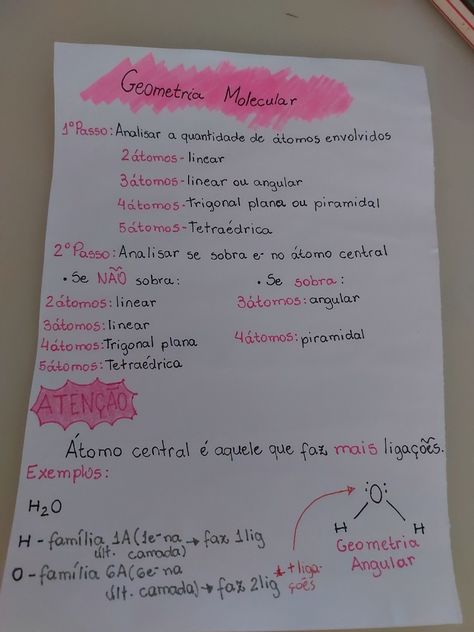 Geometria Molecular
1º Passo: Analisar a quantidade de átomos envolvidos
2 átomos - linear
3 átomos - linear ou angular
4 átomos - Trigonal plana ou piramidal
5 átomos - Tetraédrica
2º Passo: Analisar se sobra e- no átomo central
• Se NÃO sobra:
2 átomos: linear
3 átomos: linear
4 átomos: Trigonal plana
5 átomos: Tetraédrica
• Se sobra:
3 átomos: angular
4 átomos: piramidal
ATENÇÃO
Átomo central é aquele que faz mais ligações.
Exemplos:
H2O
H - família 1A (1e- na → faz 1 lig
últ. camada)
O - família 6A (6e- na
últ. camada) → faz 2 lig
* + liga-
ções
:O:
H H
Geometria
Angular